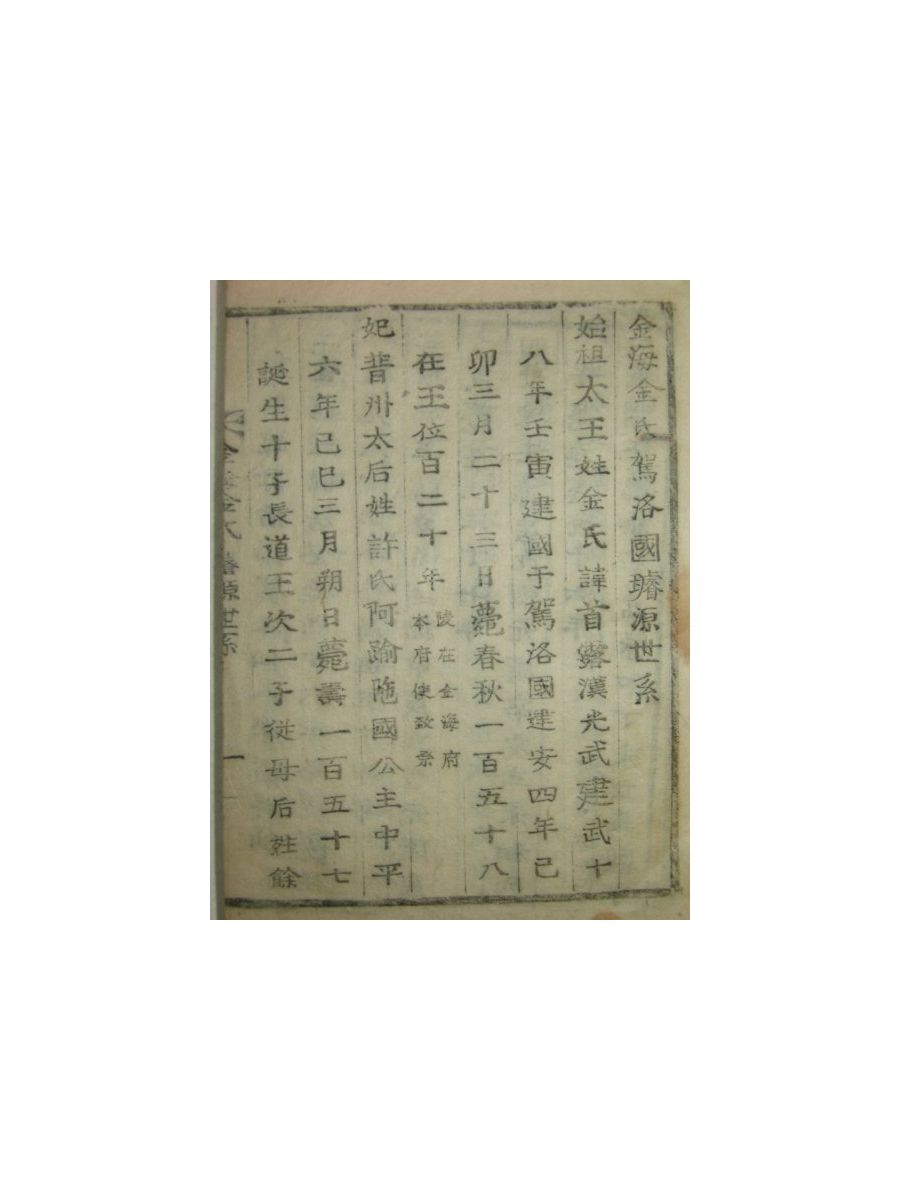 金海金氏駕洛國璿源世系
始祖太王姓金氏諱首露漢光武建武十
八年壬寅建國于駕洛國建安四年己
卯三月二十三日薨春秋一百五十八
在王位百二十年陵在金海府
本府使致祭
妃普州太后姓許氏阿踰陁國公主中平
六年己巳三月朔日薨壽一百五十七
誕生十子長道王次二子従母后姓餘
金海金氏璿源世系 一